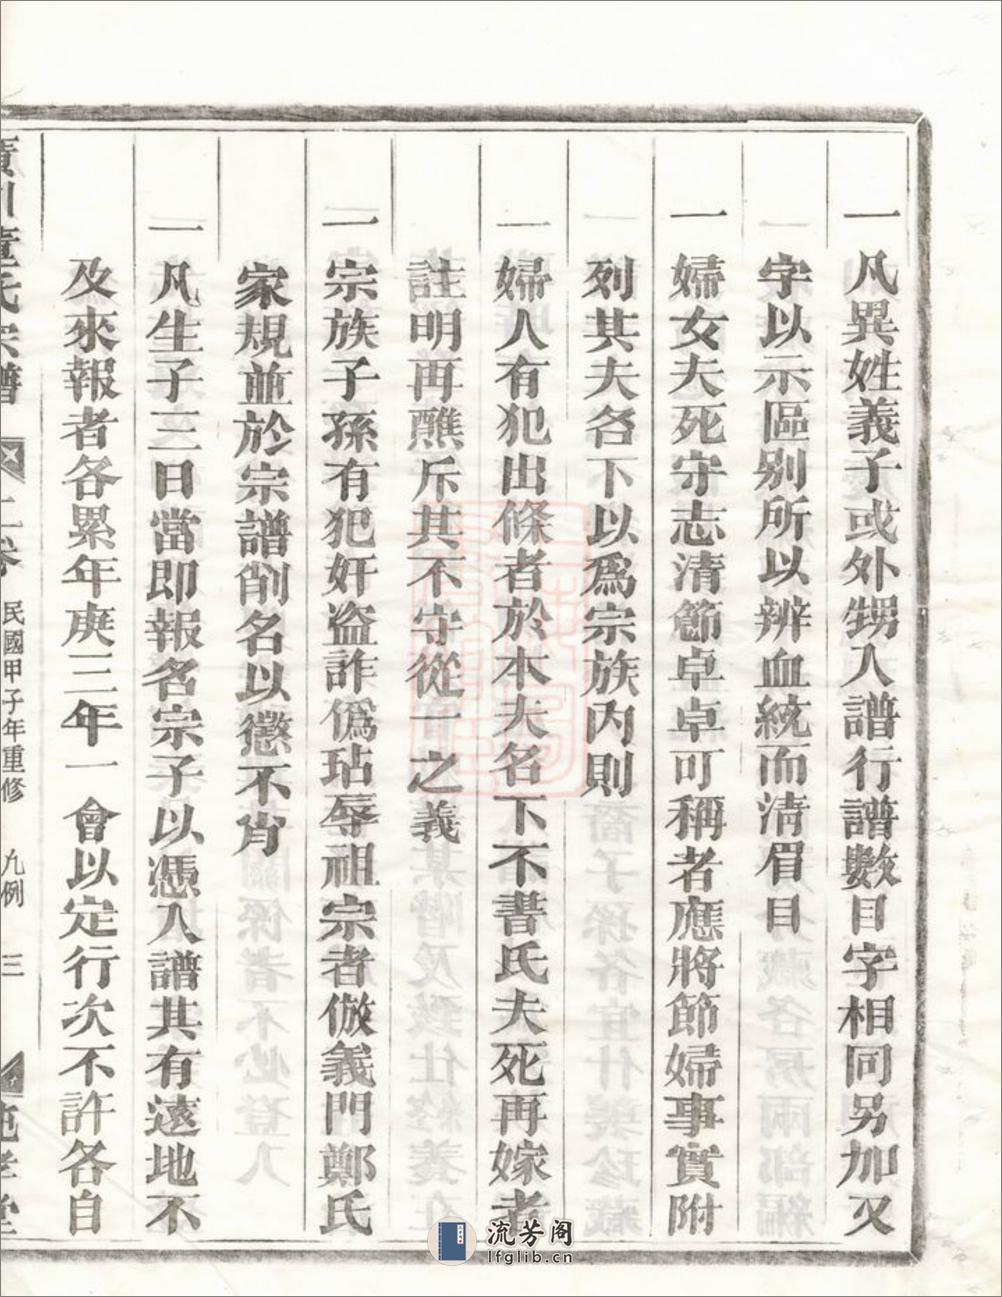 一凡異姓義子或外甥入譜行譜數目字相同另加又
字以示區別所以辨血統而清眉目
一婦女夫死守志清節卓卓可稱者應將節婦事實附
列其夫各下以爲宗族內則
一婦人有犯出條者於本夫名下不書氏夫死再嫁者
註明再醮斥其不守從一之義
一宗族子孫有犯奸盜詐僞玷辱祖宗者倣義門鄭氏
家規並於宗譜削名以懲不肖
一凡生子三日當卽報名宗子以憑入譜其有遠地不
及來報者各累年庚三年一會以定行次不許各自
董氏宗譜 卷 民國甲子年重修 凡例 三 堂
流芳阁
lfglib.cn